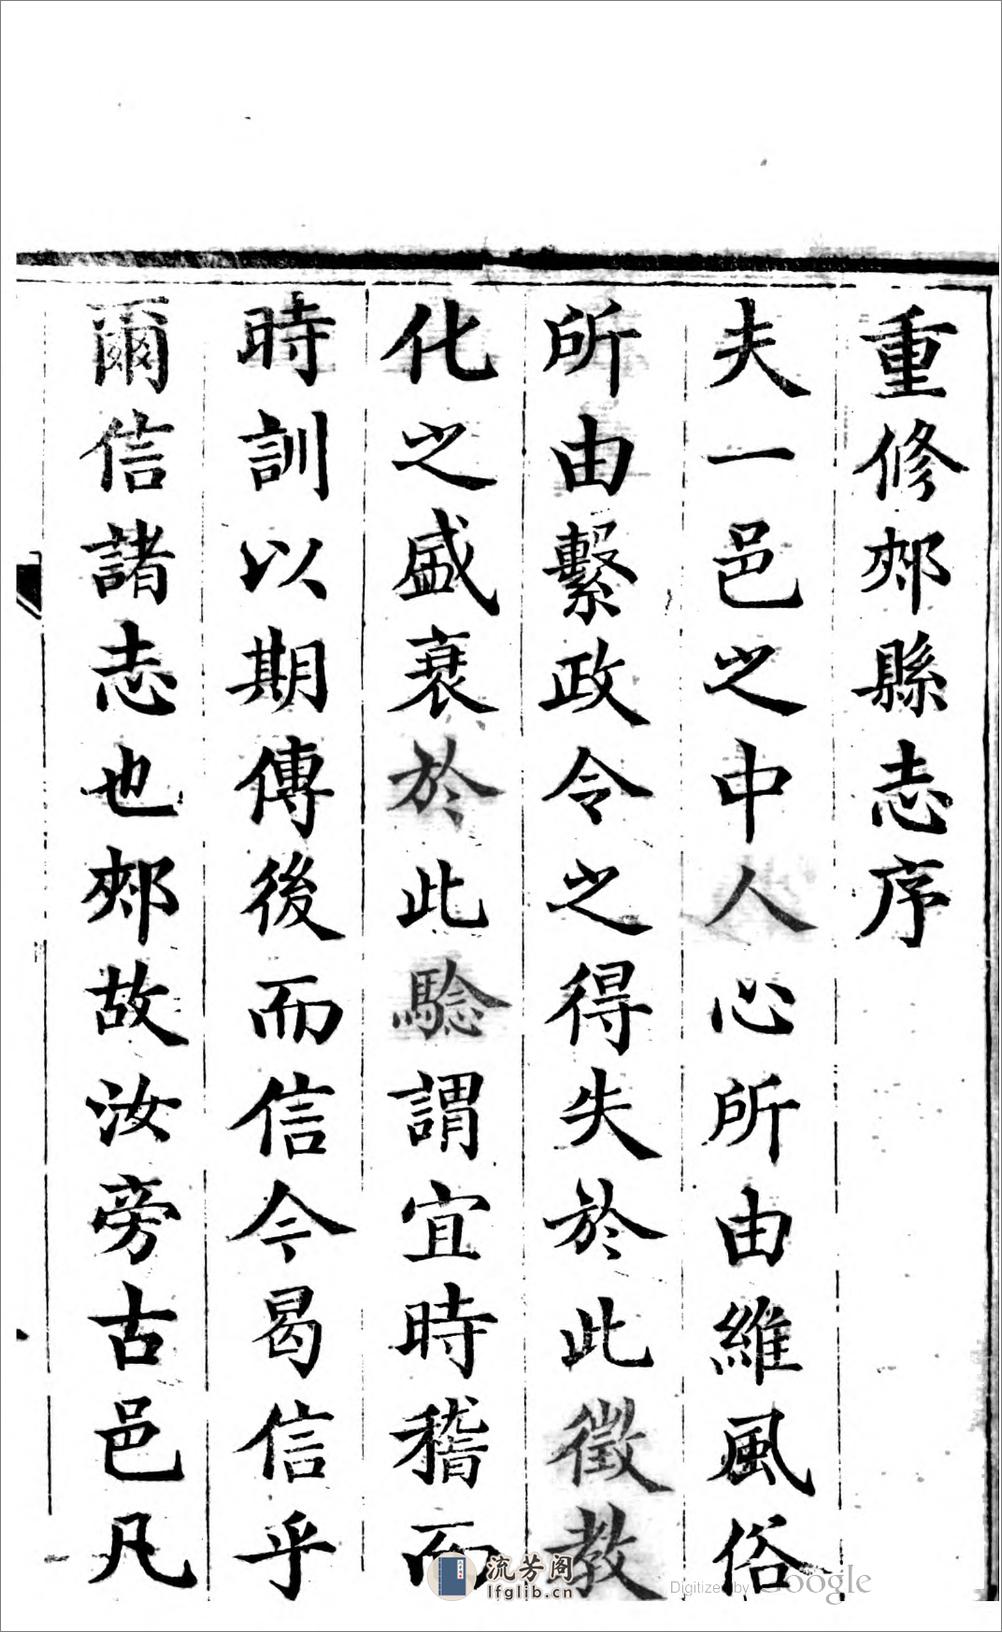 重修郟縣志序
夫一邑之中人心所由維風俗
所由繫政令之得失於此徵教
化之盛衰於此驗謂宜時稽而
時訓以期傳後而信今曷信乎
爾信諸志也郟故汝旁古邑凡
流芳阁
lfglib.cn
Digitized by Google